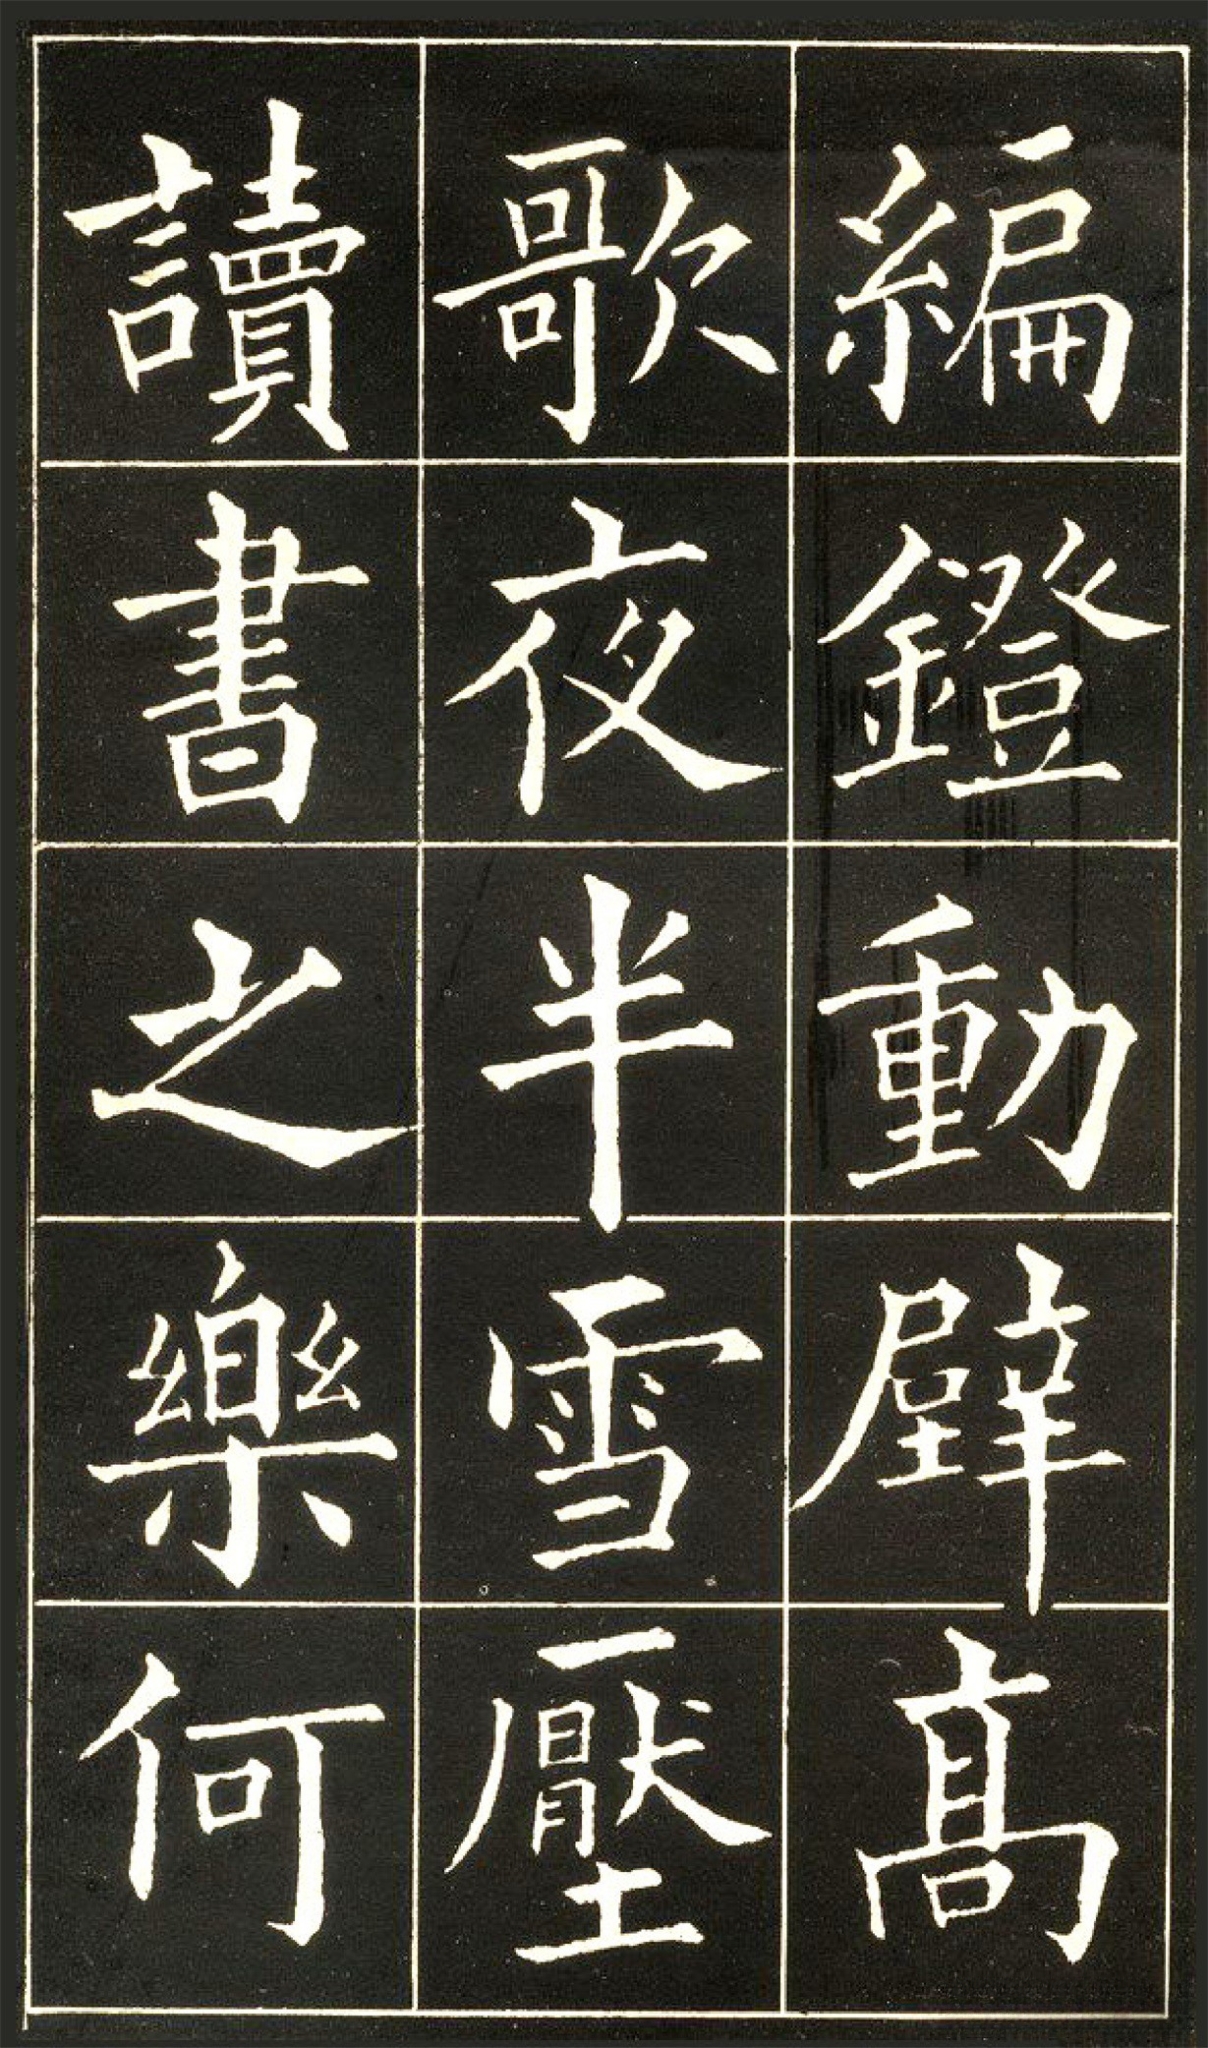 編鐙動壁髙
歌夜半雪壓
讀書之樂何